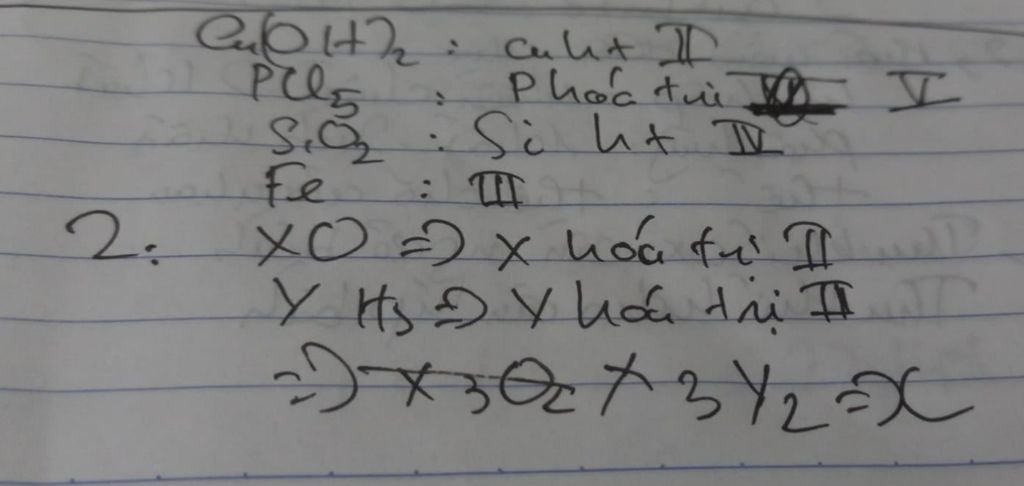 Cu(OH)2 : Cu ht II
PCl5 : P hoá trị V
SiO2 : Si ht IV
Fe : III
2: XO => X hoá trị II
YH3 => Y hoá trị II
=> X3Y2 => C